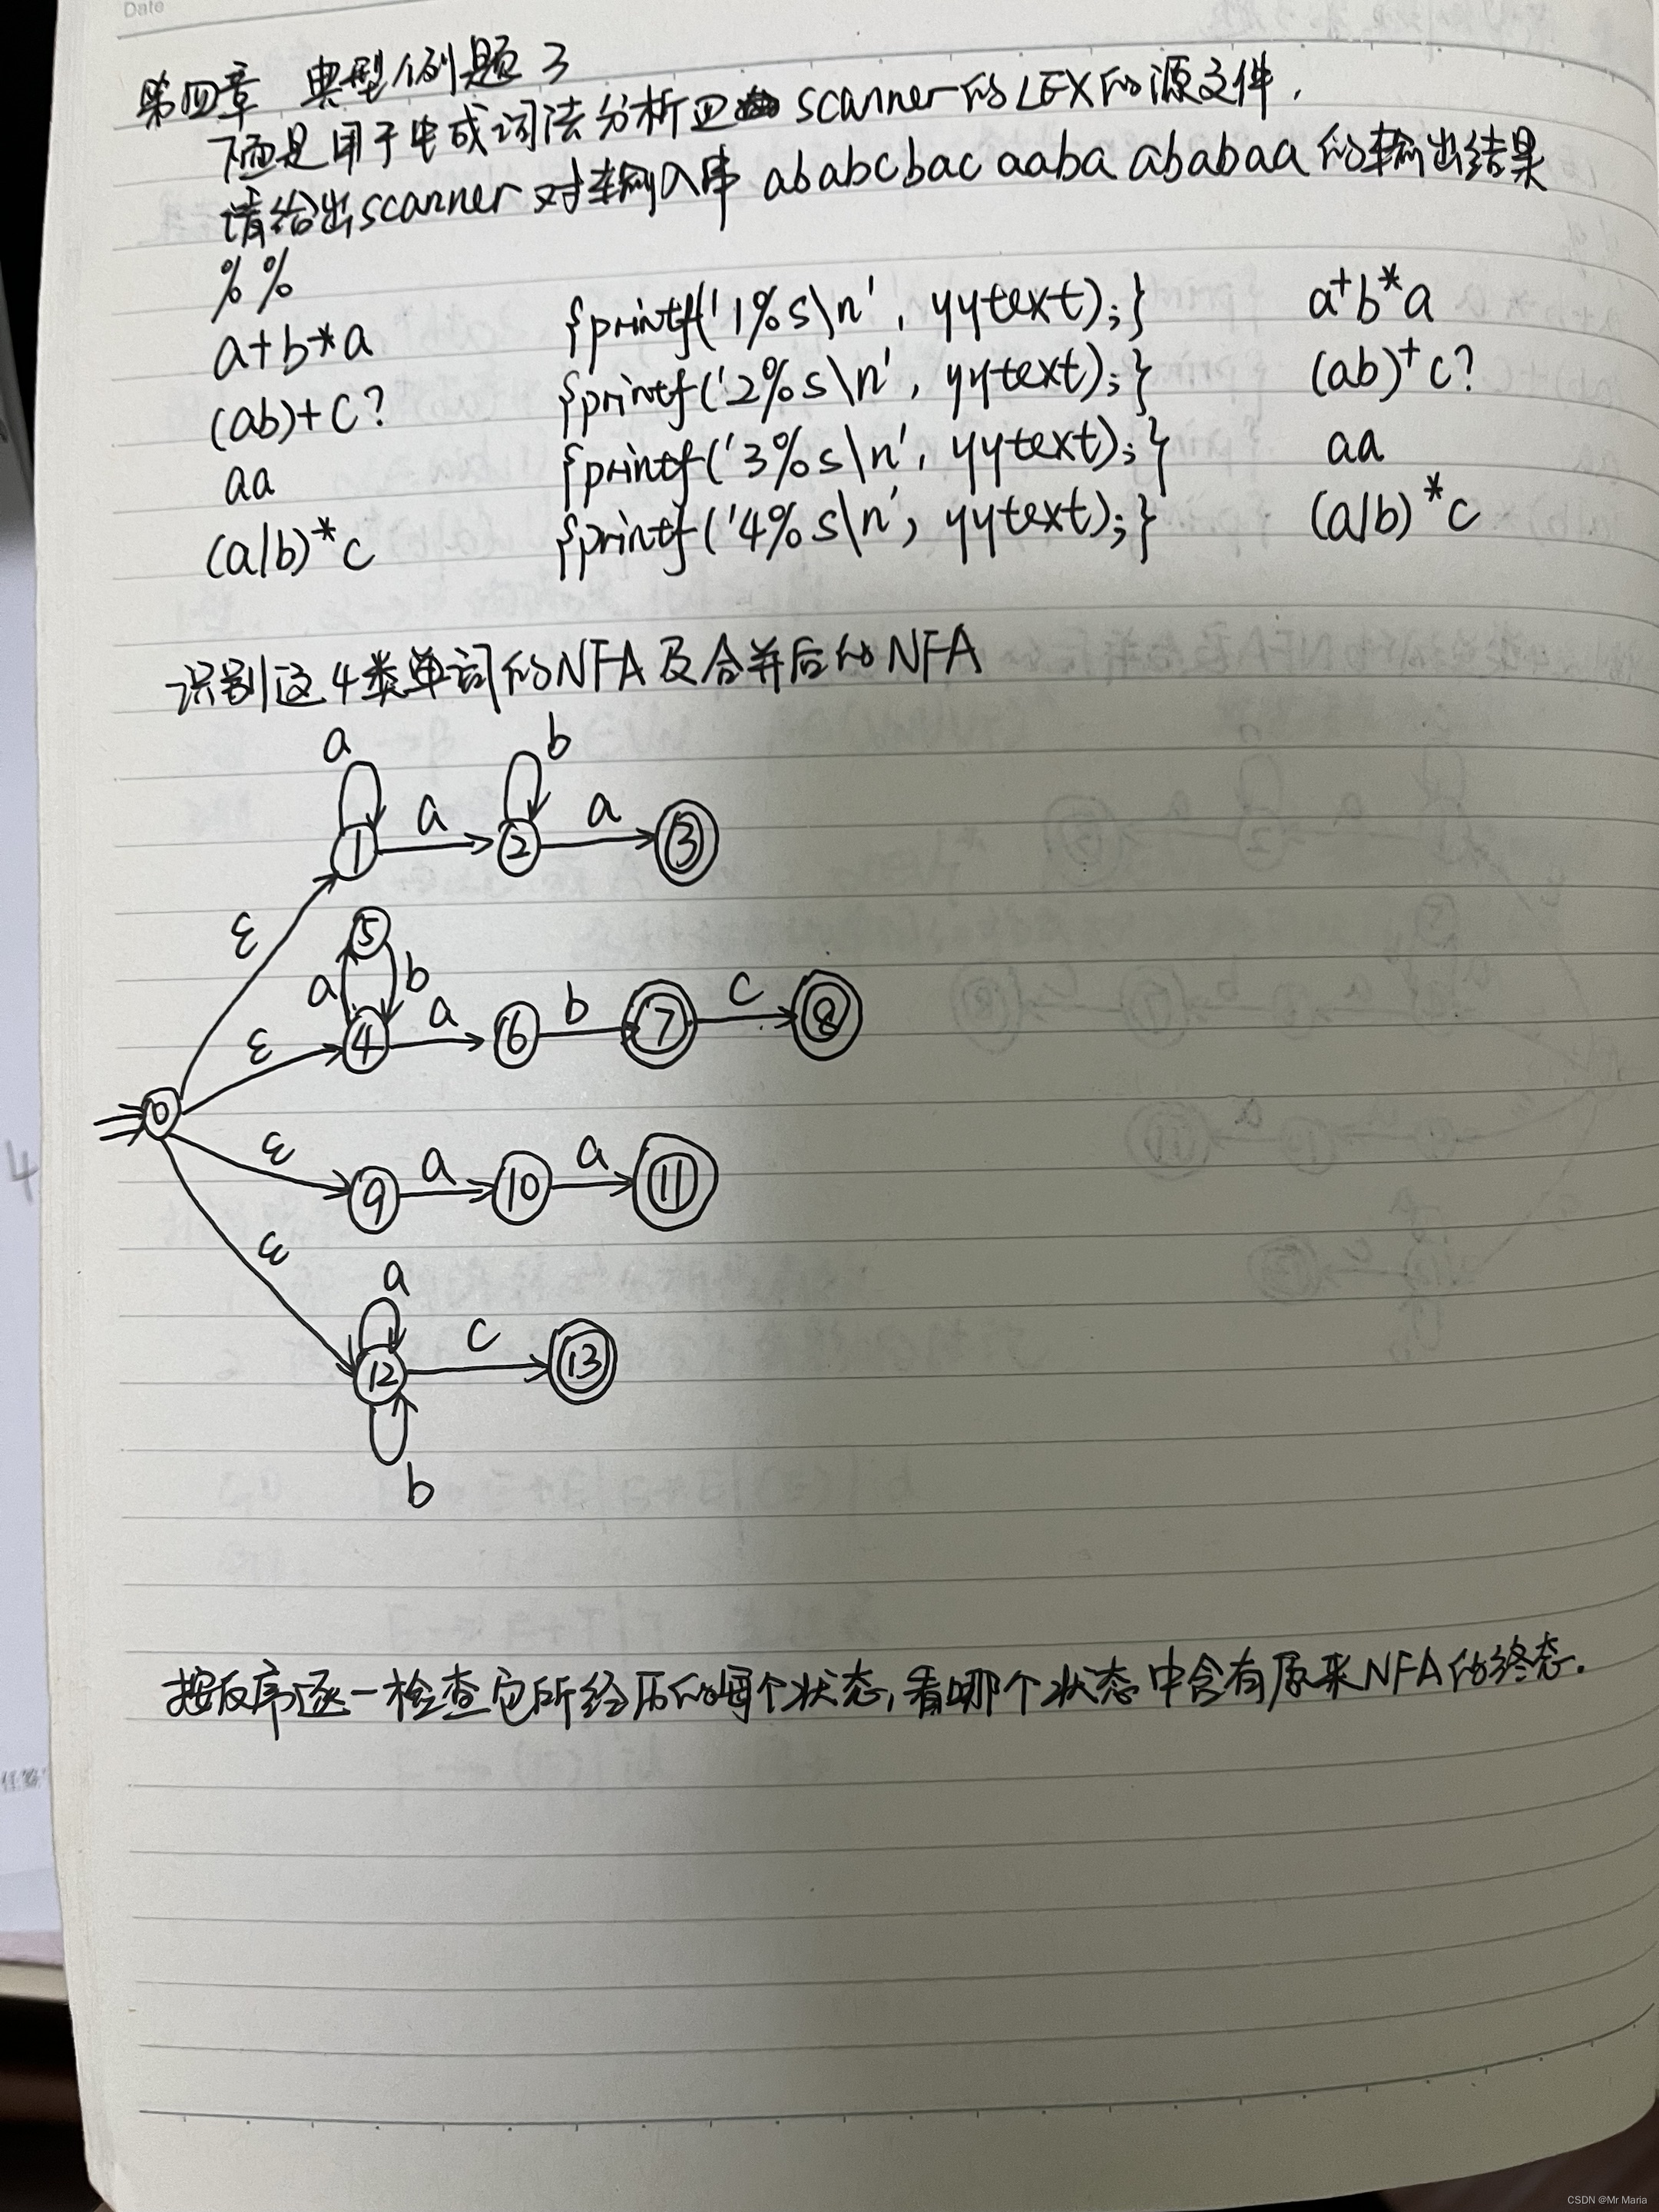 Date
第四章 典型例题 3
下面是用于生成词法分析 scanner的LEX的源文件,
请给出scanner对输入串 ababcbac aaba ababaa 的输出结果
%%
a+b*a {printf('1%s\n', yytext);} a⁺b*a
(ab)+c? {printf('2%s\n', yytext);} (ab)⁺c?
aa {printf('3%s\n', yytext);} aa
(a|b)*c {printf('4%s\n', yytext);} (a|b)*c
识别这4类单词的NFA及合并后的NFA
a b
1 a 2 a 3
ε
5
a b
ε 4 a 6 b 7 c 8
0
ε 9 a 10 a 11
ε
a
12 c 13
b
按反序逐一检查它所经历的每个状态,看哪个状态中含有原来NFA的终态.
4
CSDN @Mr Maria